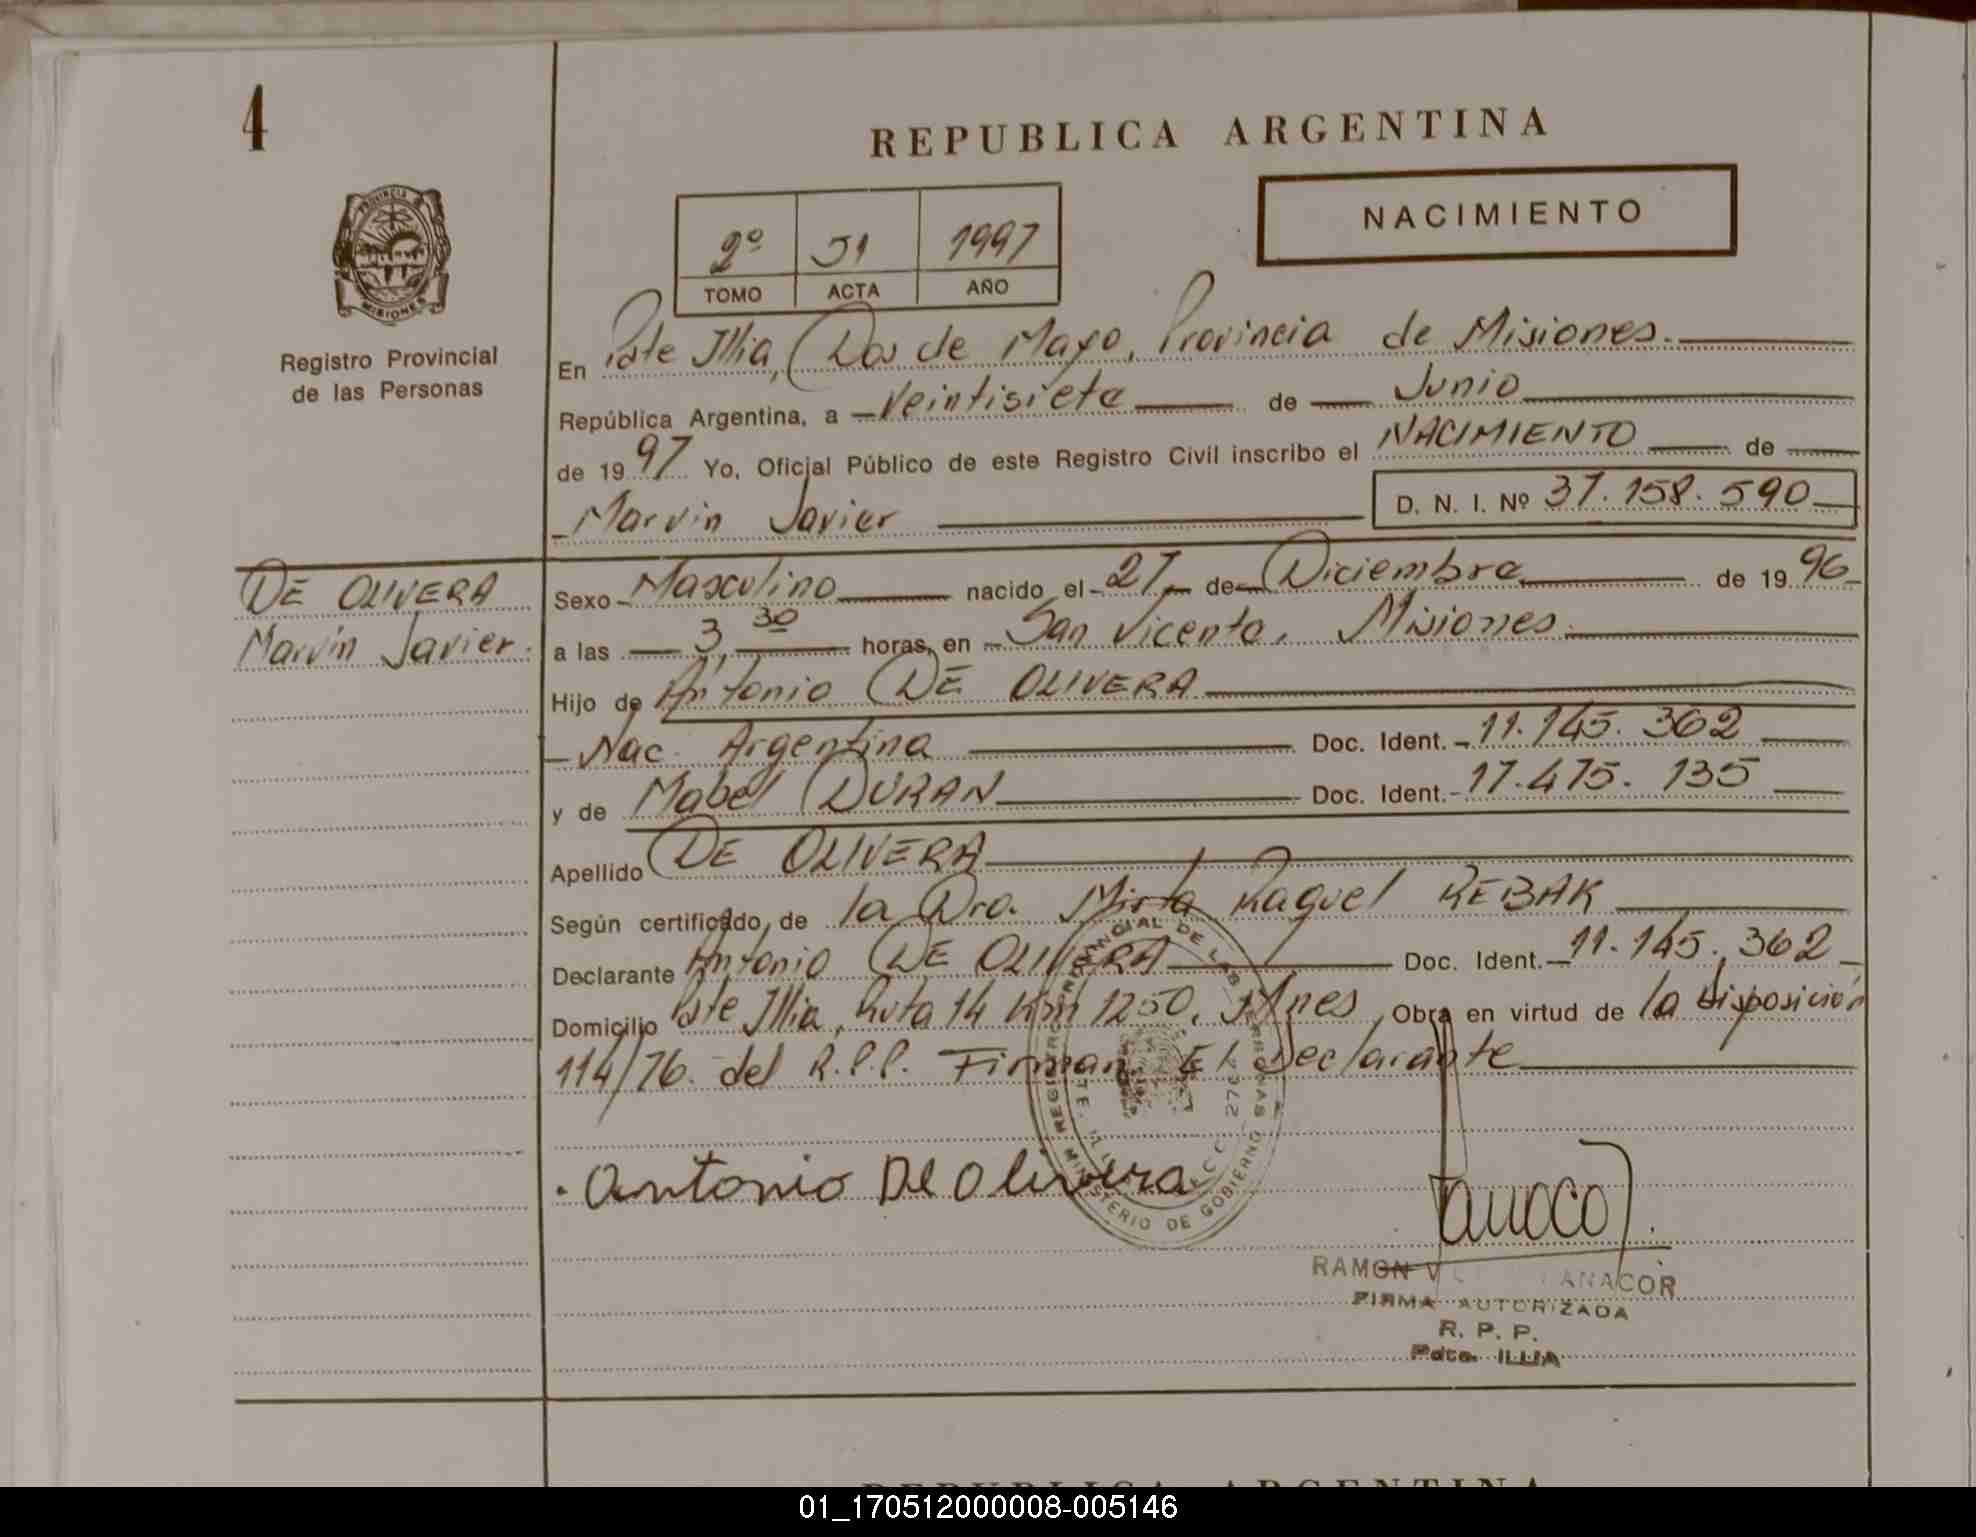 4
REPUBLICA ARGENTINA
NACIMIENTO
2º 51 1997
TOMO ACTA AÑO
PROVINCIA
MISIONES
Registro Provincial
de las Personas
En Pdte Illia, Dos de Mayo, Provincia de Misiones.
República Argentina, a Veintisiete de Junio
de 1997 Yo, Oficial Público de este Registro Civil inscribo el NACIMIENTO de
Marvin Javier D. N. I. Nº 37.158.590
DE OLIVERA
Marvin Javier.
Sexo Masculino nacido el 27 de Diciembre de 1996
a las 3,30 horas, en San Vicente, Misiones.
Hijo de Antonio DE OLIVERA
Nac. Argentina Doc. Ident. 11.145.362
y de Mabel DURAN Doc. Ident. 17.475.135
Apellido DE OLIVERA
Según certificado de la Dra. Mirta Raquel REBAK
Declarante Antonio DE OLIVERA Doc. Ident. 11.145.362
Domicilio Pdte Illia, Ruta 14 Km 1250, Mnes Obra en virtud de la disposición
114/76. del R.P.P. Firman El Declarante
REGISTRO PROVINCIAL DE LAS PERSONAS
MINISTERIO DE GOBIERNO
Antonio De Olivera
RAMON ANACOR
FIRMA AUTORIZADA
R. P. P.
Pdte. ILLIA
REPUBLICA ARGENTINA
01_170512000008-005146